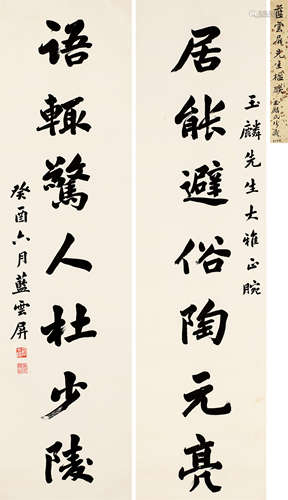 藍雲屏先生楹聯
玉麟先生大雅正腕
居能避俗陶元亮
語輒驚人杜少陵
癸酉六月藍雲屏